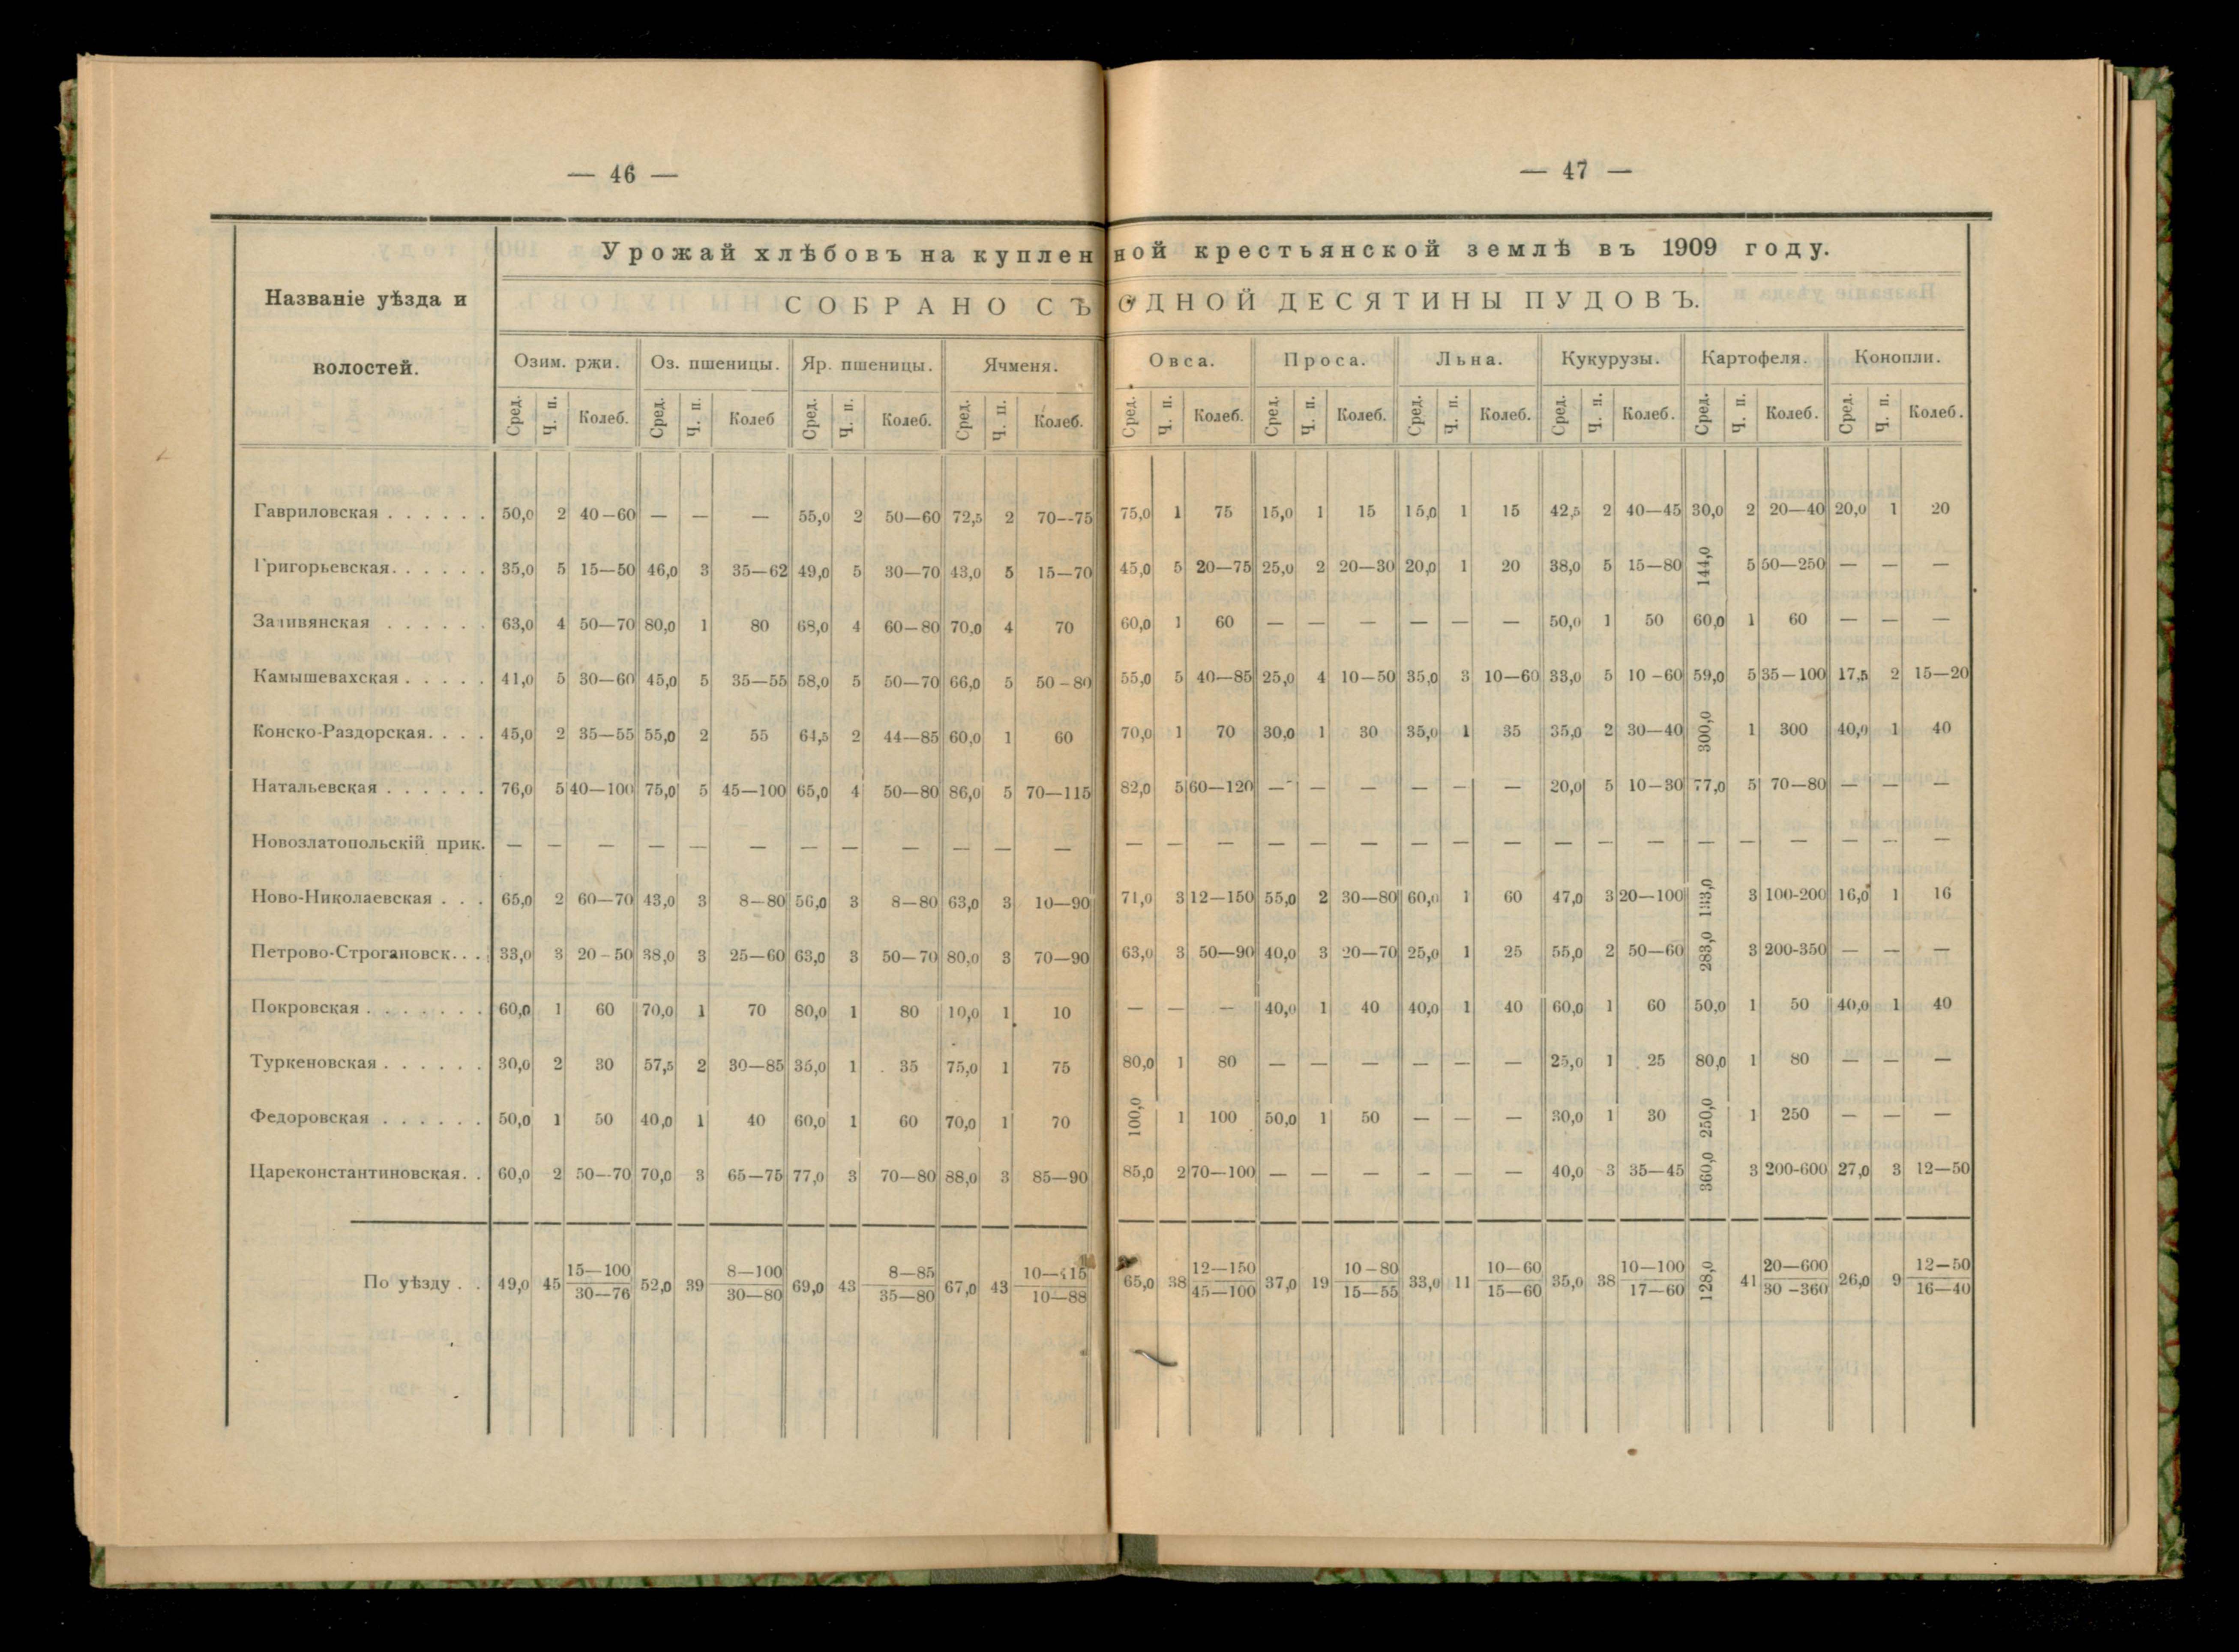 — 46 —
— 47 —
Урожай хлѣбовъ на купленной крестьянской землѣ въ 1909 году.
Названіе уѣзда и волостей.
СОБРАНО СЪ ОДНОЙ ДЕСЯТИНЫ ПУДОВЪ.
Озим. ржи. Оз. пшеницы. Яр. пшеницы. Ячменя. Овса. Проса. Льна. Кукурузы. Картофеля. Конопли.
Сред. Ч. п. Колеб. Сред. Ч. п. Колеб Сред. Ч. п. Колеб. Сред. Ч. п. Колеб. Сред. Ч. п. Колеб. Сред. Ч. п. Колеб. Сред. Ч. п. Колеб. Сред. Ч. п. Колеб. Сред. Ч. п. Колеб. Сред. Ч. п. Колеб.
Гавриловская . . . . . . 50,0 2 40—60 — — — 55,0 2 50—60 72,5 2 70—75 75,0 1 75 15,0 1 15 15,0 1 15 42,5 2 40—45 30,0 2 20—40 20,0 1 20
Григорьевская . . . . . . 35,0 5 15—50 46,0 3 35—62 49,0 5 30—70 43,0 5 15—70 45,0 5 20—75 25,0 2 20—30 20,0 1 20 38,0 5 15—80 144,0 5 50—250 — — —
Заливянская . . . . . . 63,0 4 50—70 80,0 1 80 68,0 4 60—80 70,0 4 70 60,0 1 60 — — — — — — 50,0 1 50 60,0 1 60 — — —
Камышевахская . . . . . 41,0 5 30—60 45,0 5 35—55 58,0 5 50—70 66,0 5 50-80 55,0 5 40—85 25,0 4 10—50 35,0 3 10—60 33,0 5 10-60 59,0 5 35—100 17,5 2 15—20
Конско-Раздорская . . . . 45,0 2 35—55 55,0 2 55 64,5 2 44—85 60,0 1 60 70,0 1 70 30,0 1 30 35,0 1 35 35,0 2 30—40 300,0 1 300 40,0 1 40
Натальевская . . . . . . 76,0 5 40—100 75,0 5 45—100 65,0 4 50—80 86,0 5 70—115 82,0 5 60—120 — — — — — — 20,0 5 10—30 77,0 5 70—80 — — —
Новозлатопольскій прик. — — — — — — — — — — — — — — — — — — — — — — — — — — — — — —
Ново-Николаевская . . . 65,0 2 60—70 43,0 3 8—80 56,0 3 8—80 63,0 3 10—90 71,0 3 12—150 55,0 2 30—80 60,0 1 60 47,0 3 20—100 133,0 3 100-200 16,0 1 16
Петрово-Строгановск. . . 33,0 3 20-50 38,0 3 25—60 63,0 3 50—70 80,0 3 70—90 63,0 3 50—90 40,0 3 20—70 25,0 1 25 55,0 2 50—60 283,0 3 200-350 — — —
Покровская . . . . . . . 60,0 1 60 70,0 1 70 80,0 1 80 10,0 1 10 — — — 40,0 1 40 40,0 1 40 60,0 1 60 50,0 1 50 40,0 1 40
Туркеновская . . . . . . 30,0 2 30 57,5 2 30—85 35,0 1 35 75,0 1 75 80,0 1 80 — — — — — — 25,0 1 25 80,0 1 80 — — —
Федоровская . . . . . . 50,0 1 50 40,0 1 40 60,0 1 60 70,0 1 70 100,0 1 100 50,0 1 50 — — — 30,0 1 30 250,0 1 250 — — —
Цареконстантиновская. . 60,0 2 50—70 70,0 3 65—75 77,0 3 70—80 88,0 3 85—90 85,0 2 70—100 — — — — — — 40,0 3 35—45 360,0 3 200-600 27,0 3 12—50
По уѣзду . . 49,0 45 15—100 30—76 52,0 39 8—100 30—80 69,0 43 8—85 35—80 67,0 43 10—115 10—88 65,0 38 12—150 45—100 37,0 19 10-80 15—55 33,0 11 10—60 15—60 35,0 38 10—100 17—60 128,0 41 20—600 30-360 26,0 9 12—50 16—40